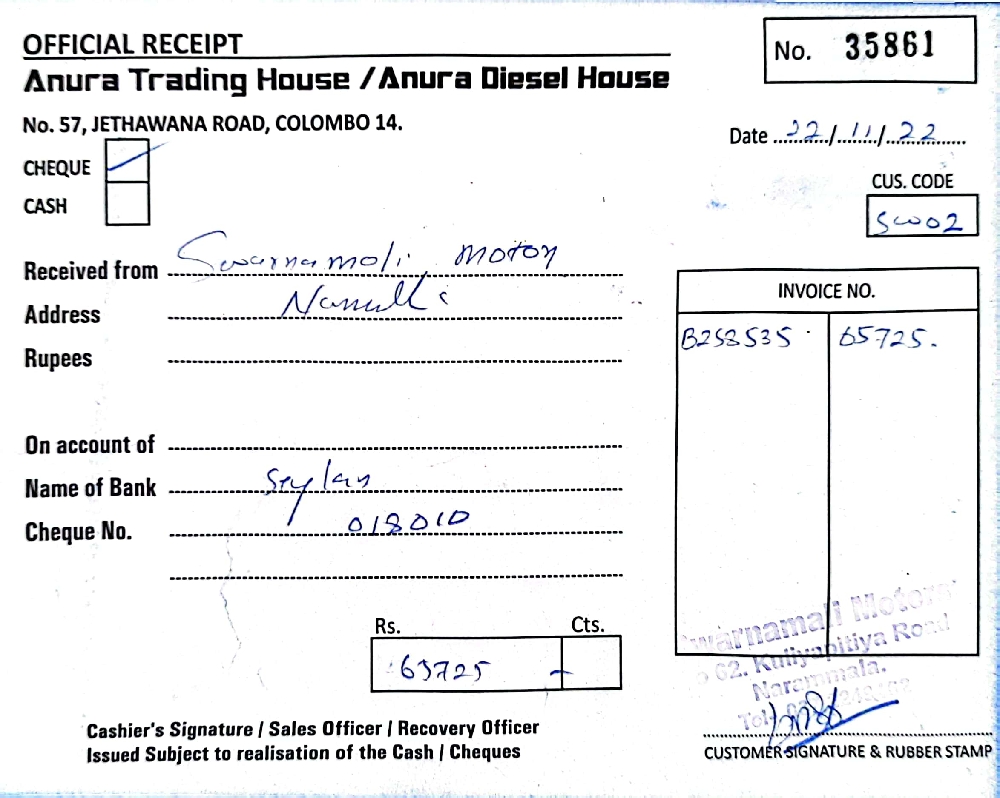 OFFICIAL RECEIPT
No. 35861
Anura Trading House / Anura Diesel House
No. 57, JETHAWANA ROAD, COLOMBO 14.
Date 22/11/22
CHEQUE
CASH
CUS. CODE
SW002
Received from Swarnamali Motors
Address
Rupees
INVOICE NO.
B258535 65725.
On account of
Name of Bank Seylan
Cheque No. 018010
Rs. Cts.
63725 -
Swarnamali Motors
62. Kuliyapitiya Road
Narammala.
Tel:
Cashier's Signature / Sales Officer / Recovery Officer
Issued Subject to realisation of the Cash / Cheques
CUSTOMER SIGNATURE & RUBBER STAMP